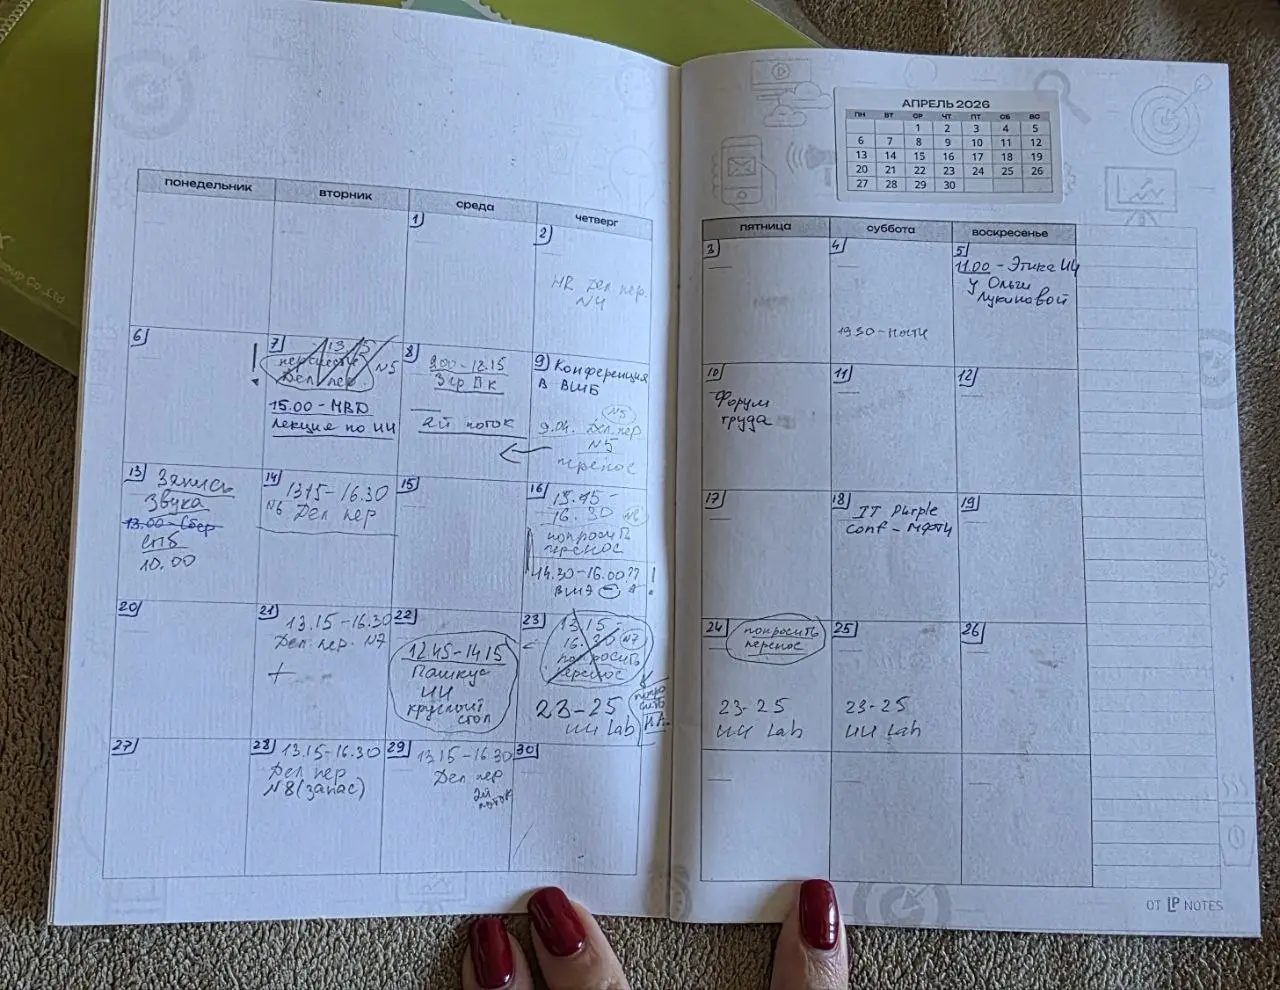 АПРЕЛЬ 2026
ПН ВТ СР ЧТ ПТ СБ ВС
1 2 3 4 5
6 7 8 9 10 11 12
13 14 15 16 17 18 19
20 21 22 23 24 25 26
27 28 29 30
понедельник вторник среда четверг пятница суббота воскресенье
1
2
HR Дел пер.
N4
3
4
19 30 -
5
11.00 - Этика ИИ
у Ольги
Лукиновой
6
!
7
13 15
Дел пер.
N5
15.00 - MBD
лекция по ИИ
8
9.00 - 12.15
2й поток
9 Конференция
в ВШБ
N5
9.04. Дел. пер
N5
перенос
10
Форум
труда
11
12
13 Запись
звука
13.00 - Сбер
СПб
10.00
14
13 15 - 16.30
N6 Дел пер
15
16
13.15 -
16.30 N6
попросить
перенос
14.30 - 16.00 ?? !
17
18
IT Purple
conf - МФТИ
19
20
21
13.15 - 16.30
Дел. пер. N7
+
22
12 45 - 14 15
Пашкус
ИИ
круглый
стол
23
13 15 -
16.30 N7
попросить
перенос
23 - 25
ИИ Lab
24
попросить
перенос
23 - 25
ИИ Lab
25
23 - 25
ИИ Lab
26
27
28 13.15 - 16.30
Дел пер
N8 (запас)
29
13.15 - 16.30
Дел пер
2й
поток
30
ОТ LP NOTES